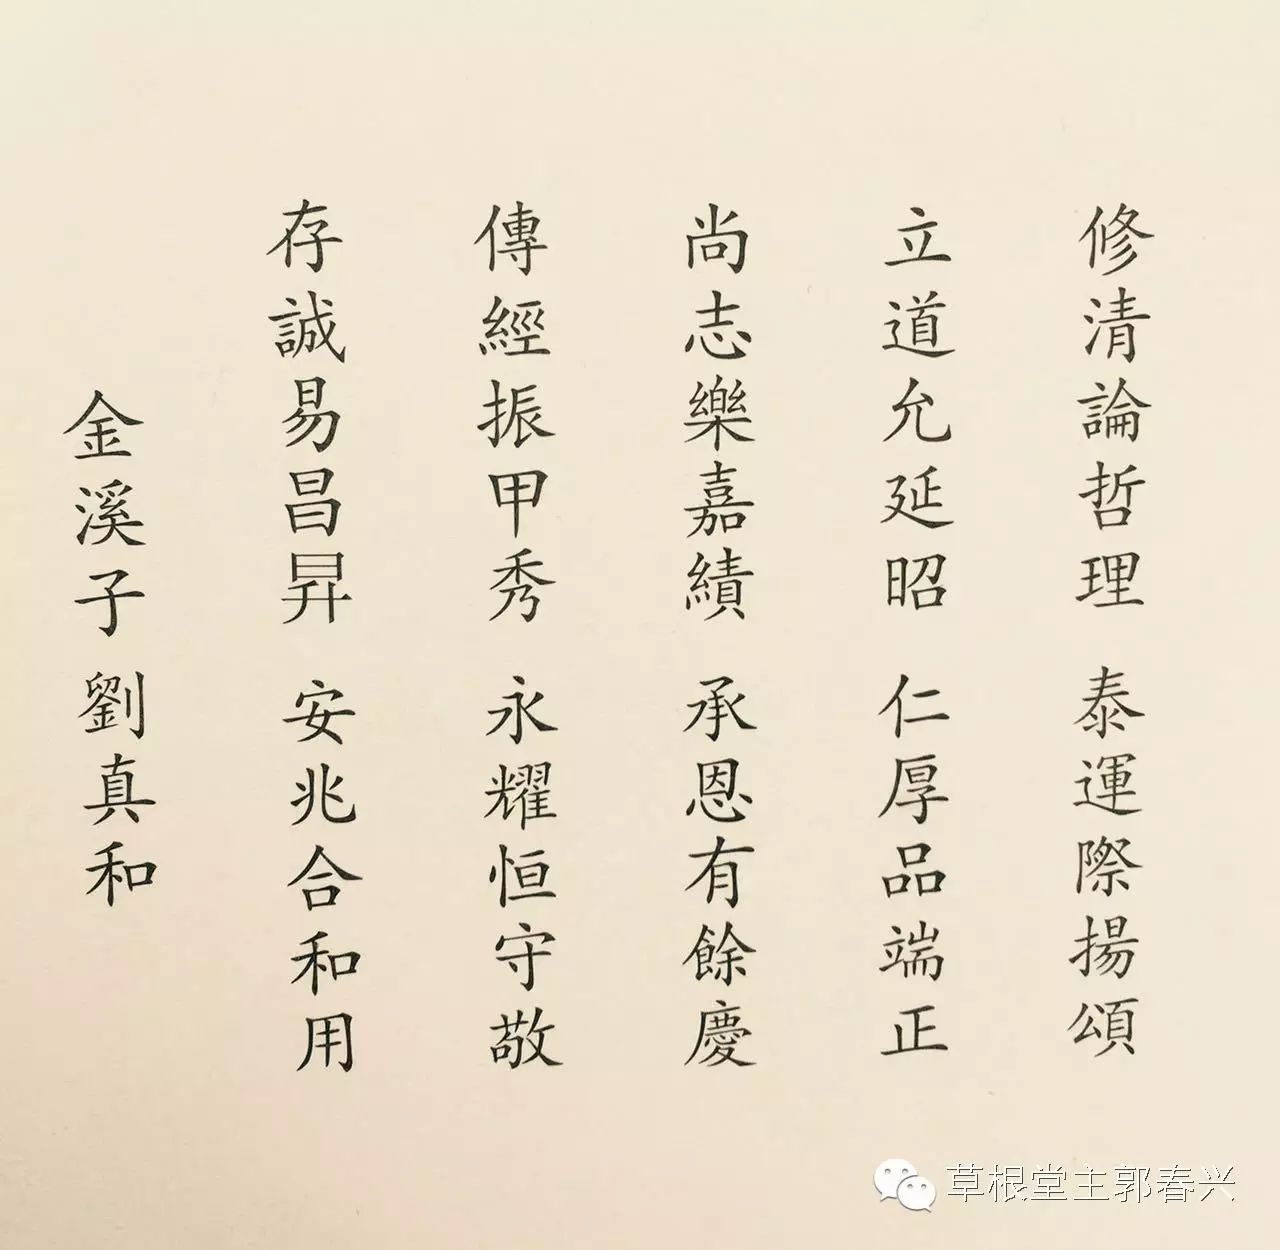 修清論哲理 泰運際揚頌
立道允延昭 仁厚品端正
尚志樂嘉績 承恩有餘慶
傳經振甲秀 永耀恒守敬
存誠易昌昇 安兆合和用
金溪子 劉真和
草根堂主郭春兴